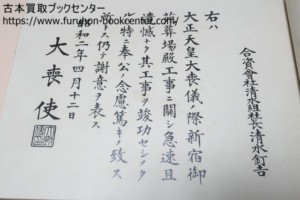 古本買取ブックセンター
https://www.furuhon-bookcenter.com/
合資會社清水組社長清水釘吉
右ハ
大正天皇大喪儀ノ際新宿御
苑葬場殿工事ニ關シ急速且
遺憾ナク其工事ヲ竣功セシメタ
ルハ特ニ奉公ノ念慮篤キノ致ス
所トス仍テ謝意ヲ表ス
昭和二年四月十二日
大喪使